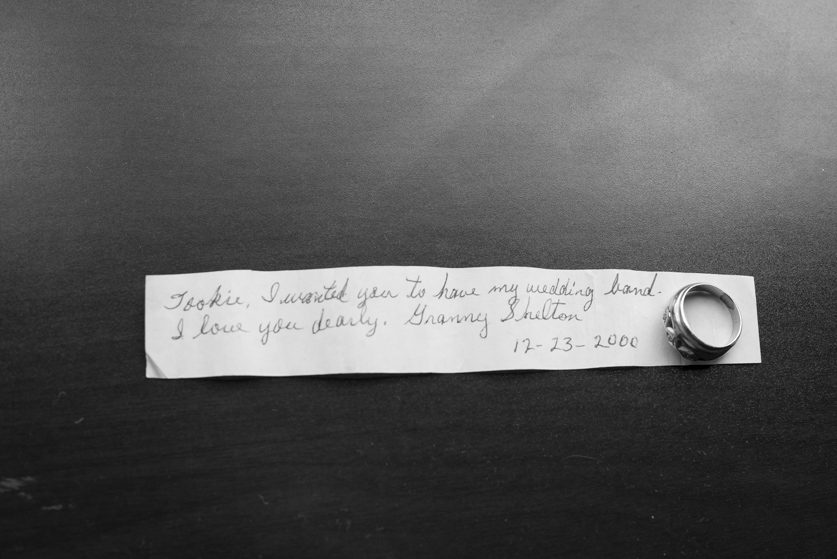 Tookie, I wanted you to have my wedding band.
I love you dearly. Granny Shelton
12-23-2000